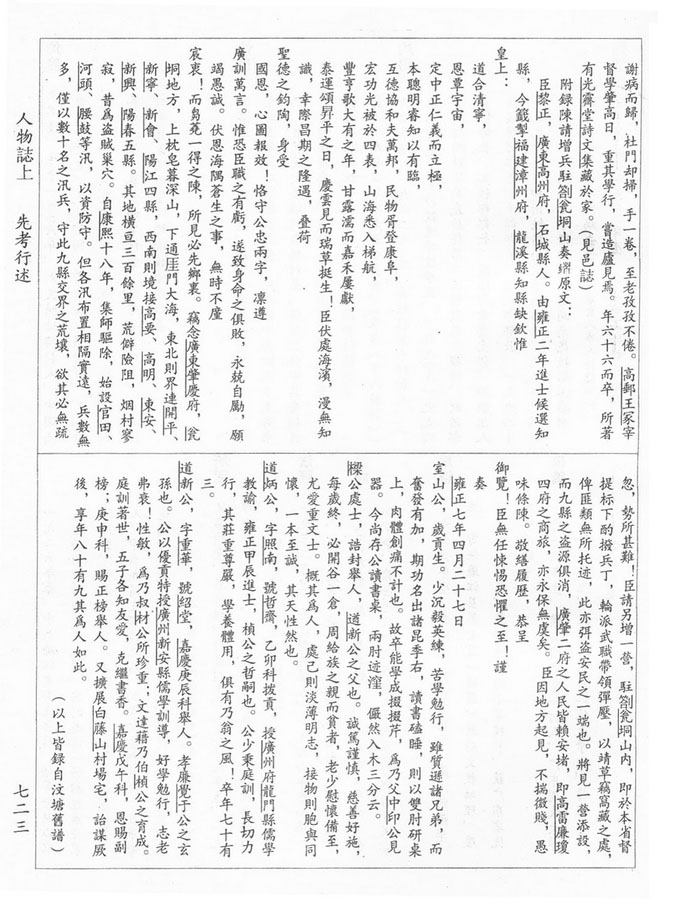 謝病而歸，杜門却掃，手一卷，至老孜孜不倦。高郵王冢宰
督學肇高日，重其學行，嘗造廬見焉。年六十六而卒，所著
有光霽堂詩文集藏於家。（見邑誌）
附録陳請增兵駐劄瓮垌山奏摺原文：
臣黎正，廣東高州府，石城縣人。由雍正二年進士候選知
縣，今籤掣福建漳州府，龍溪縣知縣缺欽惟
皇上：
道合清寧，
恩覃宇宙，
定中正仁義而立極，
本聰明睿知以有臨，
互德協和夫萬邦，民物胥登康阜，
宏功光被於四表，山海悉入梯航，
豐亨歌大有之年，甘露濡而嘉禾屢獻，
泰運頌昇平之日，慶雲見而瑞草挺生！臣伏處海濱，漫無知
識，幸際昌期之隆遇，叠荷
聖德之鈞陶，身受
國恩，心圖報效！恪守公忠兩字，凜遵
廣訓萬言。惟恐臣職之有虧，遂致身命之俱敗，永兢自勵，願
竭愚誠。伏思海隅蒼生之事，無時不廑
宸衷！而芻蕘一得之陳，所見必先鄉裏。竊念廣東肇慶府，瓮
垌地方，上枕皂暮深山，下通厓門大海，東北則界連開平、
新寧、新會、陽江四縣，西南則境接高要、高明、東安、
新興、陽春五縣。其地橫亘三百餘里，荒僻險阻，烟村寥
寂，昔為盗賊巢穴。自康熙十八年，集師驅除，始設官田、
河頭、腰鼓等汛，以資防守。但各汛布置相隔實遠，兵數無
多，僅以數十名之汛兵，守此九縣交界之荒壤，欲其必無疏
人物誌上　先考行述
忽，勢所甚難！臣請另增一營，駐劄瓮垌山內，即於本省督
提標下酌撥兵丁，輪派武職帶領彈壓，以靖草竊窩藏之處，
俾匪類無所托迹，此亦弭盗安民之一端也。將見一營添設，
而九縣之盗源俱消，廣肇二府之人民皆賴安堵，即高雷廉瓊
四府之商旅，亦永保無虞矣。臣因地方起見，不揣微賤，愚
味條陳。敬繕履歷，恭呈
御覽！臣無任悚惕恐懼之至！謹
奏
雍正七年四月二十七日
室山公，歲貢生。少沉毅英練，苦學勉行，雖質遜諸兄弟，而
奮發有加，期功名出諸昆季右，讀書磕睡，則以雙肘研桌
上，肉體創痛不計也。故卒能學成掇掇芹，爲乃父中印公見
器。今尚存公讀書桌，兩肘迹漥，儼然入木三分云。
樑公處士，誥封舉人，道新公之父也。誠篤謹慎，慈善好施，
每歲終，必開谷一倉，周給族之親而貧者，老少慰懷備至，
尤愛重文士。概其爲人，處己則淡薄明志，接物則胞與同
懷，一本至誠，其天性然也。
道炳公，字照南，號哲齋，乙卯科拔貢，授廣州府龍門縣儒學
教諭，雍正甲辰進士，楨公之哲嗣也。公少秉庭訓，長切力
行，其莊重尊嚴，學養體用，俱有乃翁之風！卒年七十有
三。
道新公，字重華，號紹堂，嘉慶庚辰科舉人。孝廉覺于公之玄
孫也。公以優貢特授廣州新安縣儒學訓導，好學勉行，志老
弗衰！性敏，爲乃叔材公所珍重；文達藉乃伯楨公之育成。
庭訓著世，五子各知友愛，克繼書香。嘉慶戊午科，恩賜副
榜；庚申科，賜正榜舉人。又擴展白藤山村場宅，詒謀厥
後，享年八十有九其爲人如此。
（以上皆録自汶塘舊譜）
七二三